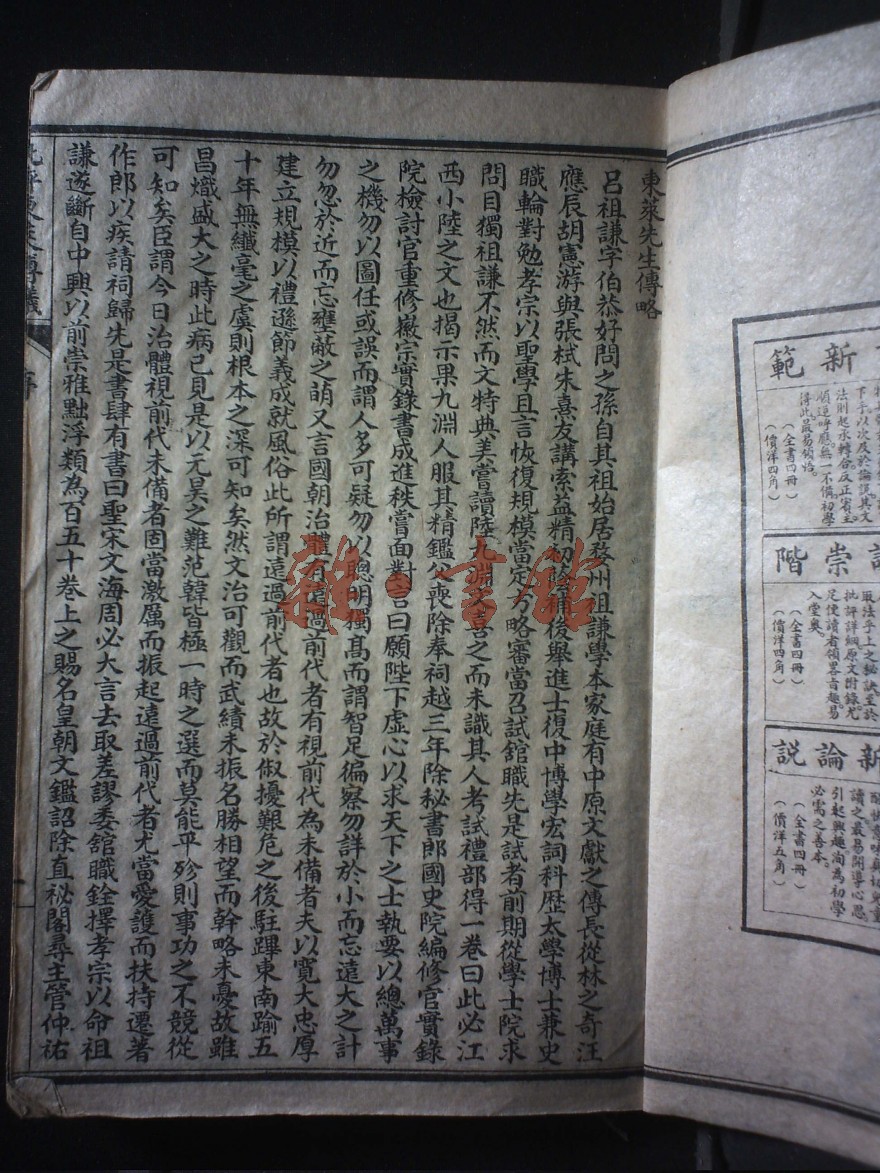 東萊先生傳略
呂祖謙字伯恭好問之孫自其祖始居婺州祖謙學本家庭有中原文獻之傳長從林之奇汪
應辰胡憲游與張栻朱熹友講索益精初蔭補後舉進士復中博學宏詞科歷太學博士兼史
職輪對勉孝宗以聖學且言恢復規模當定方略審當召試舘職先是試者前期從學士院求
問目獨祖謙不然而文特典美嘗讀陸九淵文喜之而未識其人考試禮部得一卷曰此必江
西小陸之文也揭示果九淵人服其精鑑父喪除奉祠越三年除秘書郎國史院編修官實錄
院檢討官重修徽宗實錄書成進秩嘗面對言曰願陛下虛心以求天下之士執要以總萬事
之機勿以圖任或誤而謂人多可疑勿以聰明獨高而謂智足徧察勿詳於小而忘遠大之計
勿忽於近而忘壅蔽之萌又言國朝治體有遠過前代者有視前代為未備者夫以寬大忠厚
建立規模以禮遜節義成就風俗此所謂遠過前代者也故於俶擾艱危之後駐蹕東南踰五
十年無纖毫之虞則根本之深可知矣然文治可觀而武績未振名勝相望而幹略未憂故雖
昌熾盛大之時此病已見是以元昊之難范韓皆極一時之選而莫能平殄則事功之不競從
可知矣臣謂今日治體視前代未備者固當激厲而振起遠過前代者尤當愛護而扶持遷著
作郎以疾請祠歸先是書肆有書曰聖宋文海周必大言去取差謬委舘職銓擇孝宗以命祖
謙遂斷自中興以前崇雅黜浮類為百五十卷上之賜名皇朝文鑑詔除直祕閣尋主管仲祐
新範
下手以次及於論說其文
法則起承轉合反正賓主
順逆呼應無一不備初學
得此最易領悟。
（全書四冊）
（價洋四角）
崇階
批評詳細原文附錄尤
足使讀者領畧旨趣易
入堂奧。
（全書四冊）
（價洋四角）
新論說
讀之最易開導心思
引起興趣洵為初學
必需之善本。
（全書四冊）
（價洋五角）
雜·書館